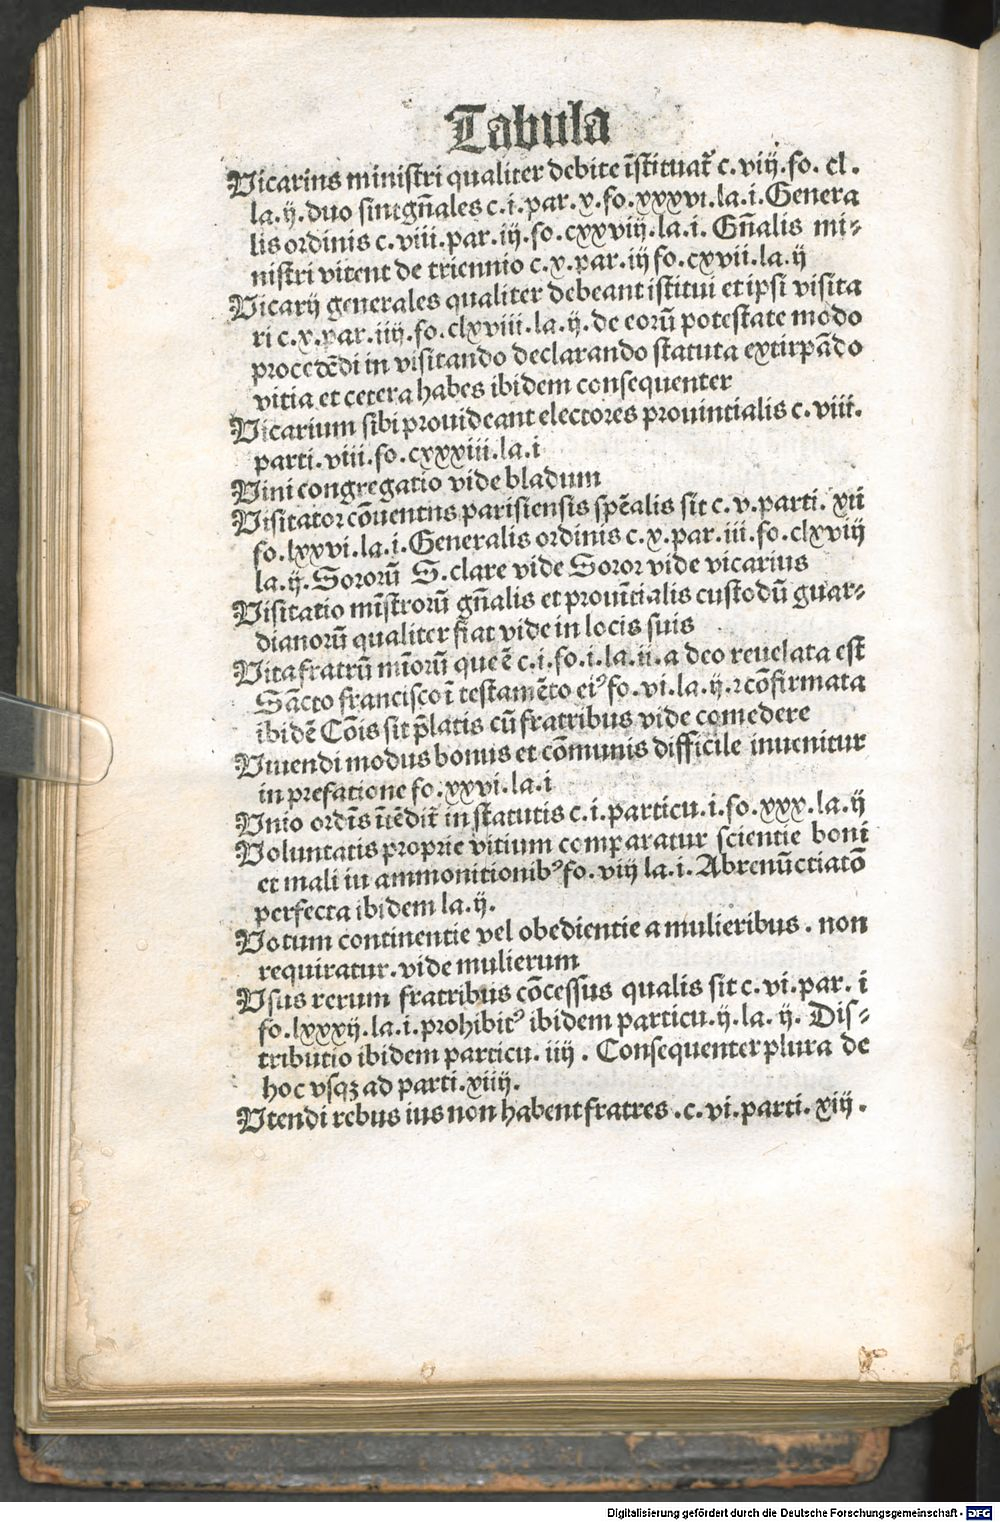 Tabula
Vicarius ministri qualiter debite īstituat᷑ c. viij. fo. cl.
la. ij. duo sint gn̄ales c. i. par. x. fo. xxxvi. la. i. Genera
lis ordinis c. viii. par. iij. fo. cxxviij. la. i. Gn̄alis mi⸗
nistri vitent de triennio c. x. par. iij fo. cxvii. la. ij
Vicarij generales qualiter debeant istitui et ipsi visita
ri c. x. par. iiij. fo. clxviii. la. ij. de eorū potestate modo
procedēdi in visitando declarando statuta extirpādo
vitia et cetera habes ibidem consequenter
Vicarium sibi prouideant electores prouintialis c. viii.
parti. viii. fo. cxxxiii. la. i
Vini congregatio vide bladum
Visitator cōuentus parisiensis spēalis sit c. v. parti. xii
fo. lxxvi. la. i. Generalis ordinis c. x. par. iii. fo. clxviij
la. ij. Sororū S. clare vide Soror vide vicarius
Visitatio mīstrorū gn̄alis et prouītialis custodū guar⸗
dianorū qualiter fiat vide in locis suis
Vita fratrū mīorū que ē c. i. fo. i. la. ii. a deo reuelata est
Sācto francisco ī testamēto eiꝰ fo. vi. la. ij. ⁊ cōfirmata
ibidē Cōis sit p̄latis cū fratribus vide comedere
Viuendi modus bonus et cōmunis difficile inuenitur
in prefatione fo. xxvi. la. i
Vnio ordīs īt̄edit̄ in statutis c. i. particu. i. fo. xxx. la. ij
Voluntatis proprie vitium comparatur scientie boni
et mali in ammonitionibꝰ fo. viij la. i. Abrenūctiatō
perfecta ibidem la. ij.
Votum continentie vel obedientie a mulieribus. non
requiratur. vide mulierum
Vsus rerum fratribus cōcessus qualis sit c. vi. par. i
fo. lxxxij. la. i. prohibitꝰ ibidem particu. ij. la. ij. Dis⸗
tributio ibidem particu. iiij. Consequenter plura de
hoc vsqꝫ ad parti. xiiij.
Vtendi rebus ius non habent fratres. c. vi. parti. xiij.
Digitalisierung gefördert durch die Deutsche Forschungsgemeinschaft - DFG